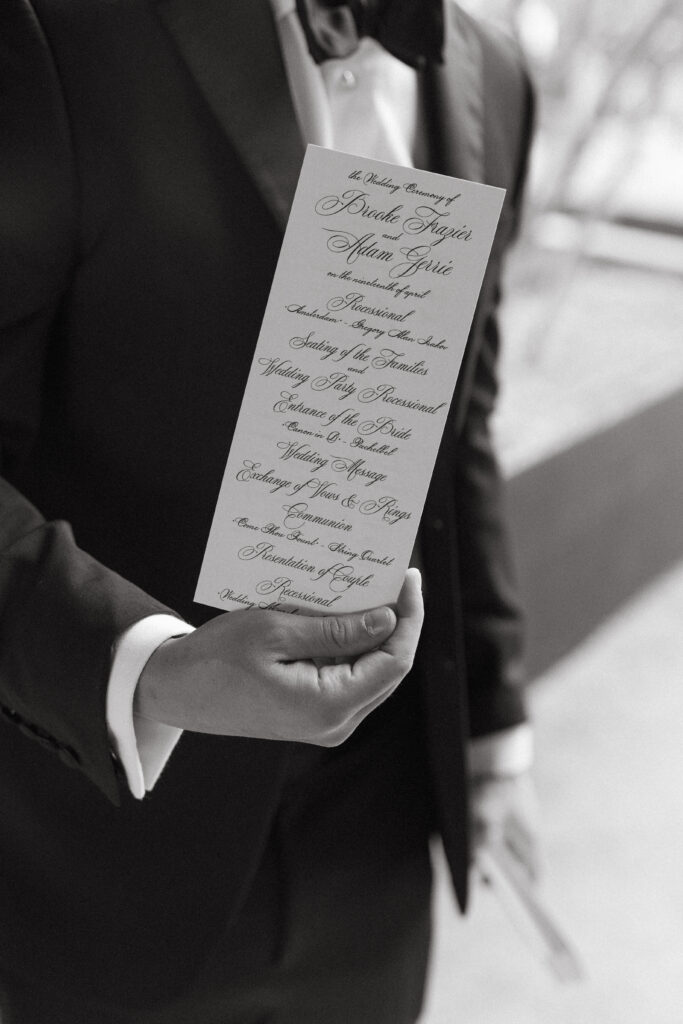 the Wedding Ceremony of
Brooke Frazier
and
Adam Gerrie
on the nineteenth of april
Processional
"Amsterdam" - Gregory Alan Isakov
Seating of the Families
and
Wedding Party Processional
Entrance of the Bride
"Canon in D" - Pachelbel
Wedding Message
Exchange of Vows & Rings
Communion
"Come Thou Fount" - String Quartet
Presentation of Couple
Recessional
"Wedding